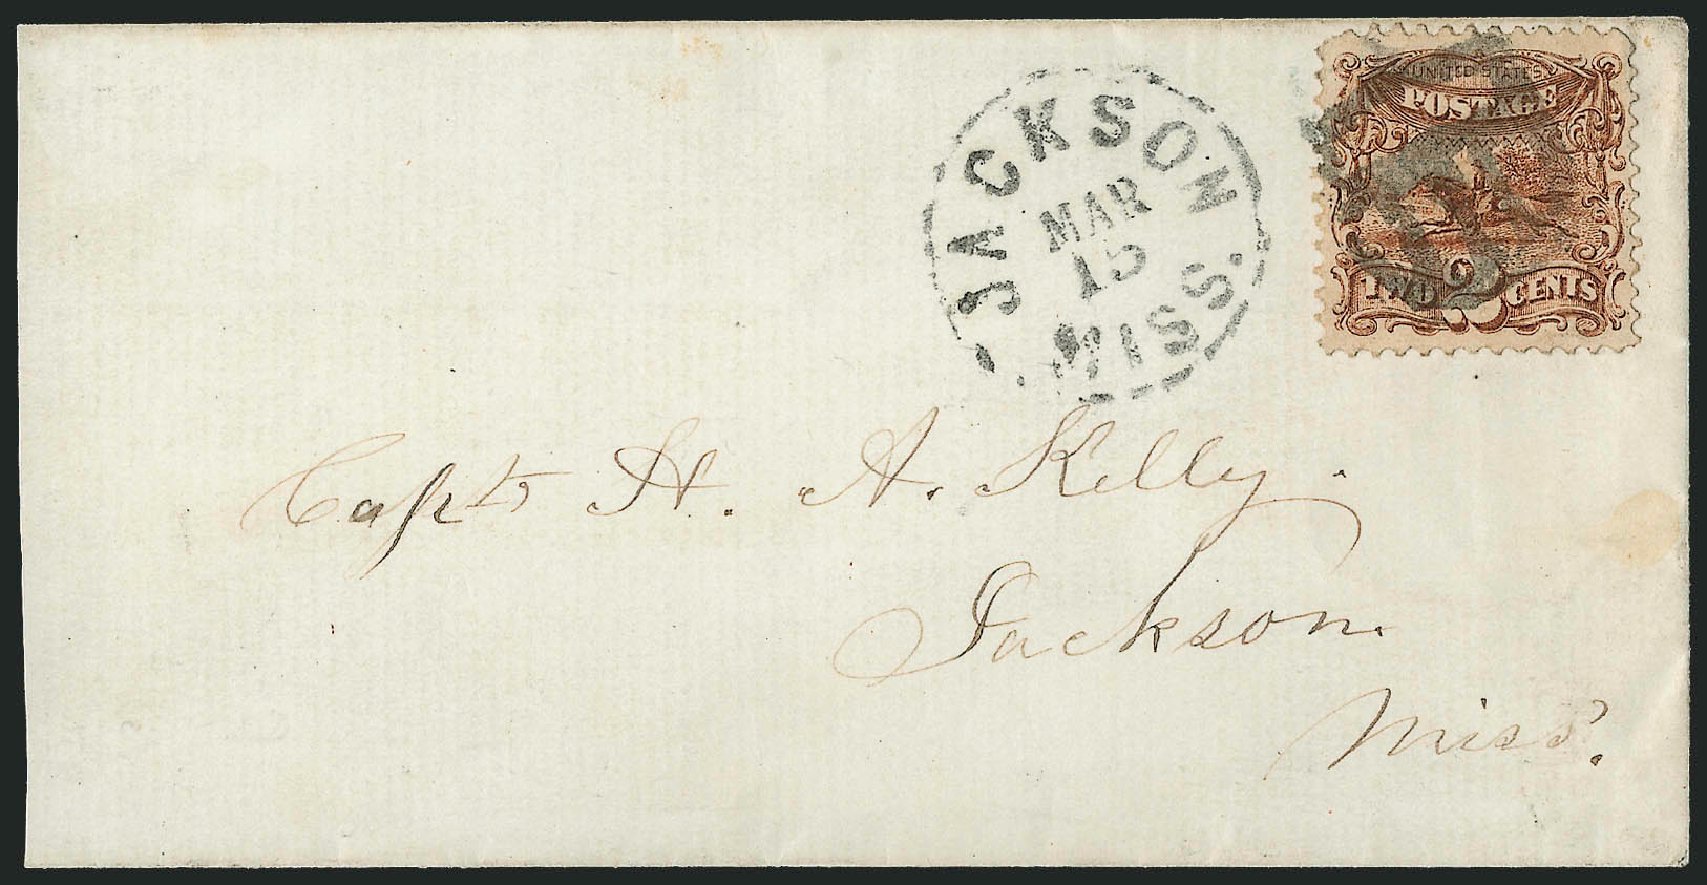 JACKSON
MAR
15
MISS.
UNITED STATES
POSTAGE
TWO 2 CENTS
Capt. H. A. Kelly.
Jackson.
Miss.